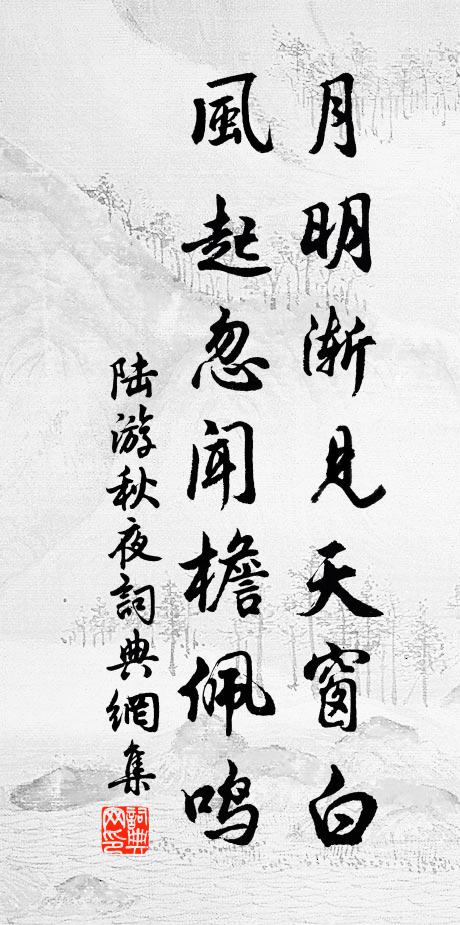 月明渐見天窗白
風起忽闻檐佩鸣
陆游秋夜詞典網集
詞典網印